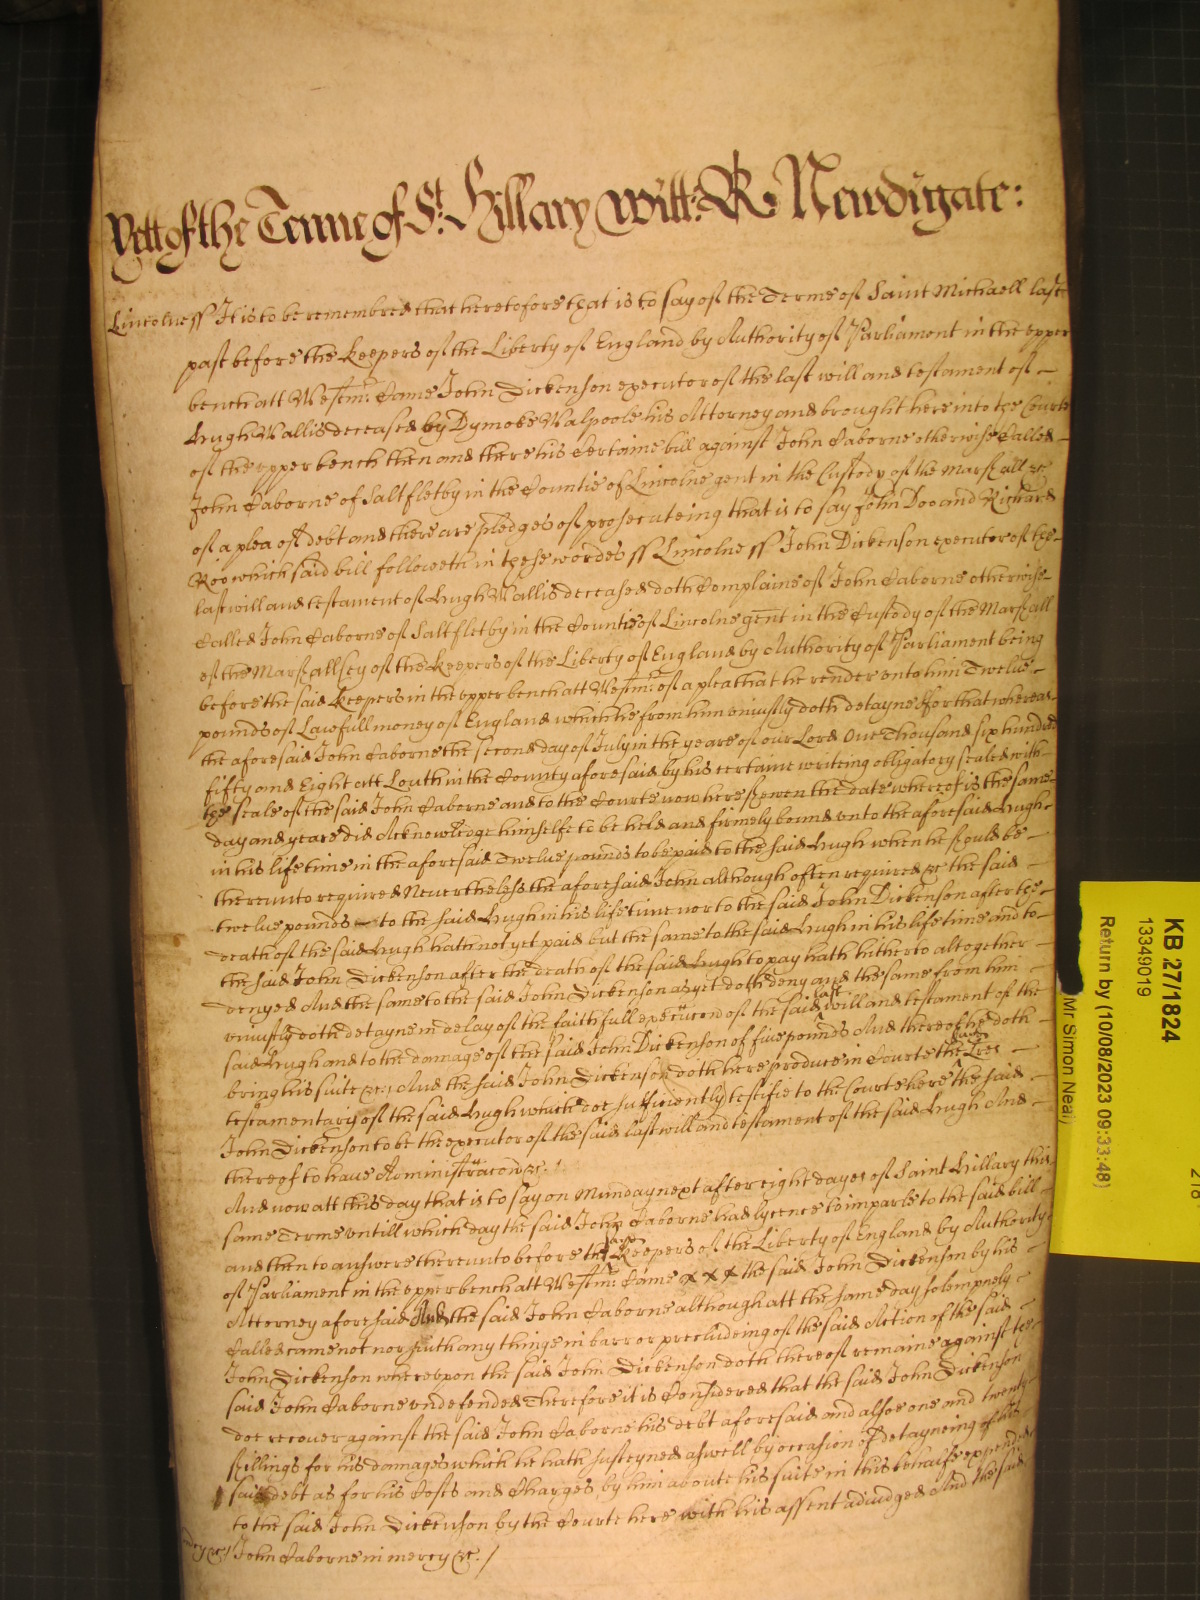 Yett of the Terme of St. Hillary Witt: R Newdigate:
Lincolne ss It is to be remembred that heretofore that is to say of the Terme of Saint Michaell last
past before the Keepers of the Liberty of England by Authority of Parliament in the upper
bench att Westmr. Came John Dickenson executor of the last will and testament of
Hugh Wallis deceased by Dymoke Walpoole his Attorney and brought here into the Courte
of the upper bench then and there his Certaine bill against John Caborne otherwise Called
John Caborne of Saltfletby in the Countie of Lincolne gent in the Custody of the Marshall &c
of a plea of debt and there are pledges of prosecuteing that is to say John Doo and Richard
Roo which said bill followeth in these wordes ss Lincolne ss John Dickenson executor of the
last will and testament of Hugh Wallis deceased doth Complaine of John Caborne otherwise
Called John Caborne of Saltfletby in the Countie of Lincolne gent in the Custody of the Marshall
of the Marshallsey of the Keepers of the Liberty of England by Authority of Parliament being
before the said Keepers in the upper bench att Westmr. of a plea that he render unto him Twelve
pounds of Lawfull money of England which he from him uniustly doth detayne For that whereas
the aforesaid John Caborne the second day of July in the yeare of our Lord One Thousand six hundred
fifty and Eight att Louth in the County aforesaid by his certaine writeing obligatory sealed with
the seale of the said John Caborne and to the Courte now here shewen the date whereof is the same
day and yeare did Acknowledge himselfe to be held and firmely bound unto the aforesaid Hugh
in his life time in the aforesaid Twelve pounds to be paid to the said Hugh when he should be
thereunto required Neverthelesse the aforesaid John although often required &c the said
twelve pounds to the said Hugh in his life time nor to the said John Dickenson after the
death of the said Hugh hath not yet paid but the same to the said Hugh in his life time and to
the said John Dickenson after the death of the said Hugh to pay hath hitherto altogether
denyed And the same to the said John Dickenson as yet doth deny and the same from him
uniustly doth detayne in delay of the faithfull execucion of the said last will and testament of the
said Hugh and to the damage of the said John Dickenson of five pounds And thereof he doth
bring his suite &c: And the said John Dickenson doth here produce in Courte the Lres
testamentary of the said Hugh which doe sufficiently testifie to the Courte here the said
John Dickenson to be the executor of the said last will and testament of the said Hugh And
thereof to have Administracion &c. /
And now att this day that is to say on Munday next after eight dayes of Saint Hillary this
same Terme untill which day the said John Caborne had lycence to imparle to the said bill
and then to answere thereunto before the Keepers of the Liberty of England by Authority
of Parliament in the upper bench att Westmr. Came x x x the said John Dickenson by his
Attorney aforesaid And the said John Caborne although att the same day solempnely
Called came not nor saith any thinge in barr or precludeing of the said Action of the said
John Dickenson whereupon the said John Dickenson doth thereof remaine against the
said John Caborne undefended Therefore it is Considered that the said John Dickenson
doe recover against the said John Caborne his debt aforesaid and alsoe one and twenty
shillings for his damages which he hath susteyned aswell by occasion of detayneing of his
said debt as for his Costs and Charges by him aboute his suite in this behalfe expended
to the said John Dickenson by the Courte here with his assent adiudged And the said
John Caborne in mercy &c. /
KB 27/1824
13349019
Return by (10/08/2023 09:33:48)
Mr Simon Neal